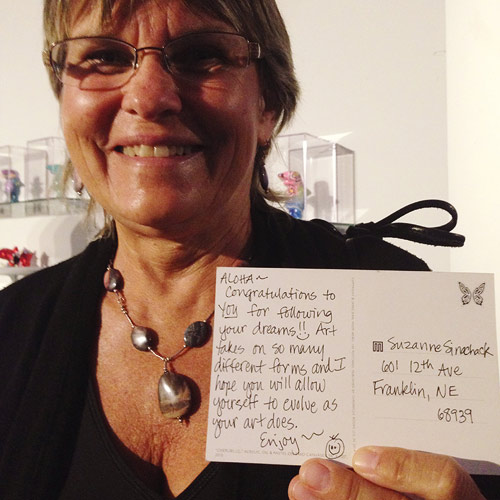 ALOHA~
Congratulations to
YOU for following
your dreams!! Art
takes on so many
different forms and I
hope you will allow
yourself to evolve as
your art does.
Enjoy~
Suzanne Sinachack
601 12th Ave
Franklin, NE
68939